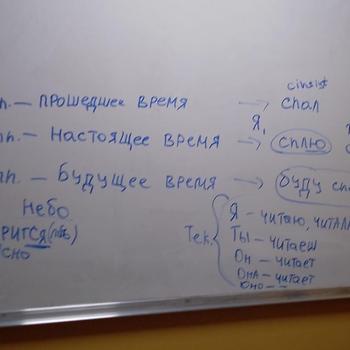 cinsist
п. — прошедшее время → спал
Я,
пп. — Настоящее время → сплю
пп. — Будущее время → буду сп
Небо
рится (
сно
Тек.
Я — читаю, читал
Ты — читаеш
Он — читает
Она — читает
Оно — " —